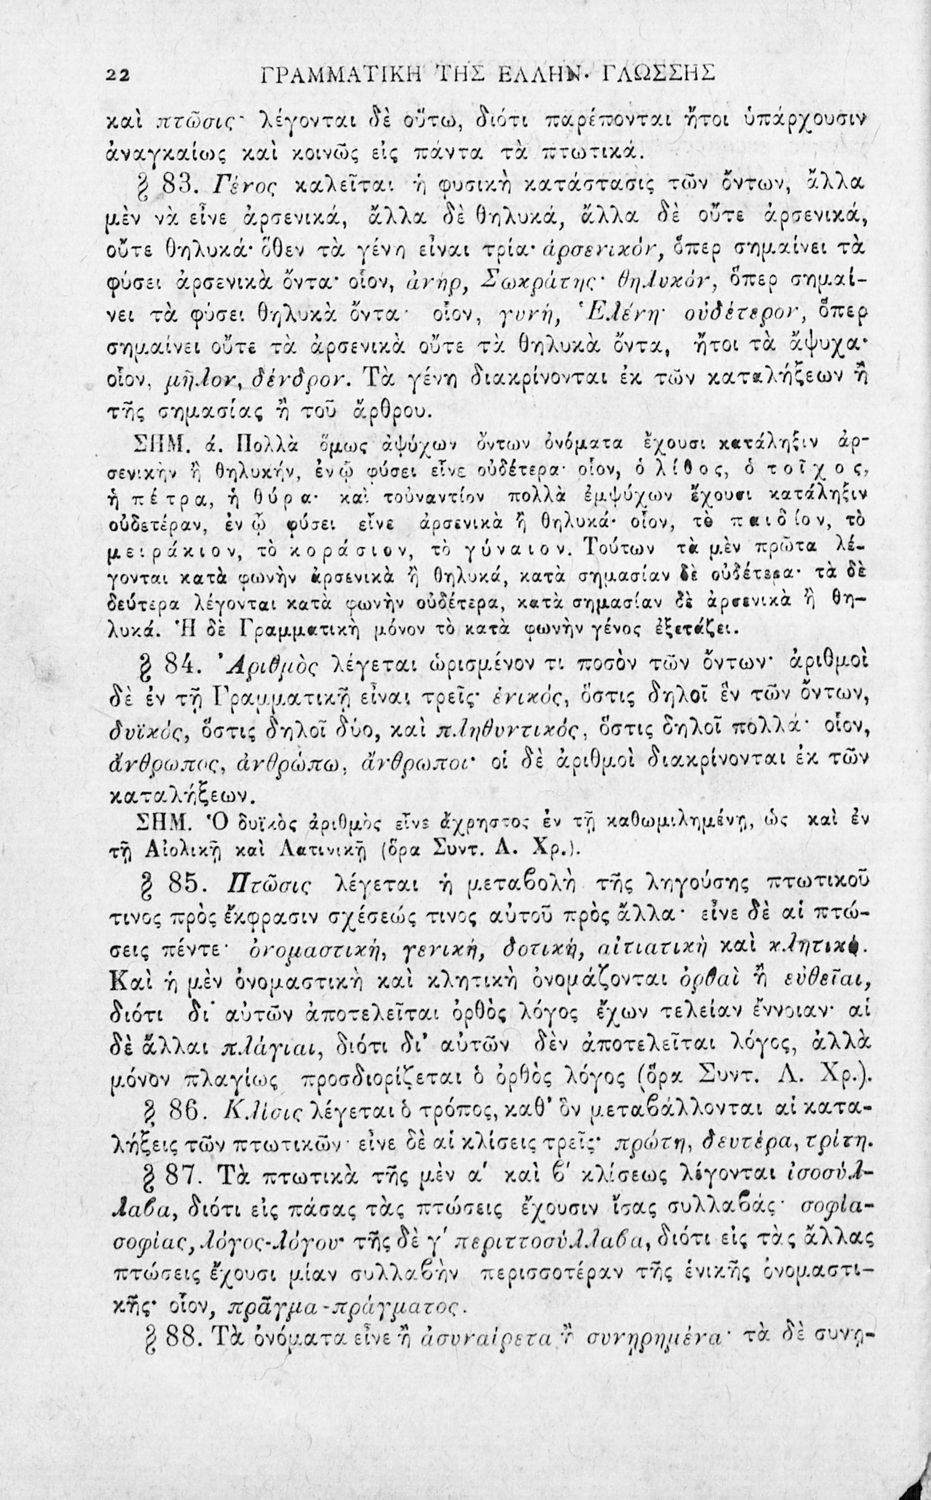 22 ΓΡΑΜΜΑΤΙΚΗ ΤΗΣ ΕΛΛΗΝ. ΓΛΩΣΣΗΣ
καὶ πτῶσις· λέγονται δὲ οὕτω, διότι παρέπονται ἤτοι ὑπάρχουσιν
ἀναγκαίως καὶ κοινῶς εἰς πάντα τὰ πτωτικά.
§ 83. Γένος καλεῖται ἡ φυσικὴ κατάστασις τῶν ὄντων, ἄλλα
μὲν νὰ εἶνε ἀρσενικά, ἄλλα δὲ θηλυκά, ἄλλα δὲ οὔτε ἀρσενικά,
οὔτε θηλυκά· ὅθεν τὰ γένη εἶναι τρία· ἀρσενικόν, ὅπερ σημαίνει τὰ
φύσει ἀρσενικὰ ὄντα· οἷον, ἀνήρ, Σωκράτης· θηλυκόν, ὅπερ σημαί-
νει τὰ φύσει θηλυκὰ ὄντα· οἷον, γυνή, Ἑλένη· οὐδέτερον, ὅπερ
σημαίνει οὔτε τὰ ἀρσενικὰ οὔτε τὰ θηλυκὰ ὄντα, ἤτοι τὰ ἄψυχα·
οἷον, μῆλον, δένδρον. Τὰ γένη διακρίνονται ἐκ τῶν καταλήξεων ἢ
τῆς σημασίας ἢ τοῦ ἄρθρου.
ΣΗΜ. ά. Πολλὰ ὅμως ἀψύχων ὄντων ὀνόματα ἔχουσι κατάληξιν ἀρ-
σενικὴν ἢ θηλυκήν, ἐν ᾧ φύσει εἶνε οὐδέτερα· οἷον, ὁ λίθος, ὁ τοῖχος,
ἡ πέτρα, ἡ θύρα· καὶ τοὐναντίον πολλὰ ἐμψύχων ἔχουσι κατάληξιν
οὐδετέραν, ἐν ᾧ φύσει εἶνε ἀρσενικὰ ἢ θηλυκά· οἷον, τὸ παιδίον, τὸ
μειράκιον, τὸ κοράσιον, τὸ γύναιον. Τούτων τὰ μὲν πρῶτα λέ-
γονται κατὰ φωνὴν ἀρσενικὰ ἢ θηλυκά, κατὰ σημασίαν δὲ οὐδέτερα· τὰ δὲ
δεύτερα λέγονται κατὰ φωνὴν οὐδέτερα, κατὰ σημασίαν δὲ ἀρσενικὰ ἢ θη-
λυκά. Ἡ δὲ Γραμματικὴ μόνον τὸ κατὰ φωνὴν γένος ἐξετάζει.
§ 84. Ἀριθμὸς λέγεται ὡρισμένον τι ποσὸν τῶν ὄντων· ἀριθμοὶ
δὲ ἐν τῇ Γραμματικῇ εἶναι τρεῖς· ἑνικός, ὅστις δηλοῖ ἓν τῶν ὄντων,
δυϊκός, ὅστις δηλοῖ δύο, καὶ πληθυντικός, ὅστις δηλοῖ πολλά· οἷον,
ἄνθρωπος, ἀνθρώπω, ἄνθρωποι· οἱ δὲ ἀριθμοὶ διακρίνονται ἐκ τῶν
καταλήξεων.
ΣΗΜ. Ὁ δυϊκὸς ἀριθμὸς εἶνε ἄχρηστος ἐν τῇ καθωμιλημένῃ, ὡς καὶ ἐν
τῇ Αἰολικῇ καὶ Λατινικῇ (ὅρα Συντ. Λ. Χρ.).
§ 85. Πτῶσις λέγεται ἡ μεταβολὴ τῆς ληγούσης πτωτικοῦ
τινος πρὸς ἔκφρασιν σχέσεώς τινος αὐτοῦ πρὸς ἄλλα· εἶνε δὲ αἱ πτώ-
σεις πέντε· ὀνομαστική, γενική, δοτική, αἰτιατικὴ καὶ κλητική.
Καὶ ἡ μὲν ὀνομαστικὴ καὶ κλητικὴ ὀνομάζονται ὀρθαὶ ἢ εὐθεῖαι,
διότι δι᾽ αὐτῶν ἀποτελεῖται ὀρθὸς λόγος ἔχων τελείαν ἔννοιαν· αἱ
δὲ ἄλλαι πλάγιαι, διότι δι᾽ αὐτῶν δὲν ἀποτελεῖται λόγος, ἀλλὰ
μόνον πλαγίως προσδιορίζεται ὁ ὀρθὸς λόγος (ὅρα Συντ. Λ. Χρ.).
§ 86. Κλίσις λέγεται ὁ τρόπος, καθ᾽ ὃν μεταβάλλονται αἱ κατα-
λήξεις τῶν πτωτικῶν· εἶνε δὲ αἱ κλίσεις τρεῖς· πρώτη, δευτέρα, τρίτη.
§ 87. Τὰ πτωτικὰ τῆς μὲν α΄ καὶ β΄ κλίσεως λέγονται ἰσοσύλ-
λαβα, διότι εἰς πάσας τὰς πτώσεις ἔχουσιν ἴσας συλλαβάς· σοφία-
σοφίας, λόγος-λόγου· τῆς δὲ γ΄ περιττοσύλλαβα, διότι εἰς τὰς ἄλλας
πτώσεις ἔχουσι μίαν συλλαβὴν περισσοτέραν τῆς ἑνικῆς ὀνομαστι-
κῆς· οἷον, πρᾶγμα-πράγματος.
§ 88. Τὰ ὀνόματα εἶνε ἢ ἀσυναίρετα ἢ συνηρημένα· τὰ δὲ συνη-